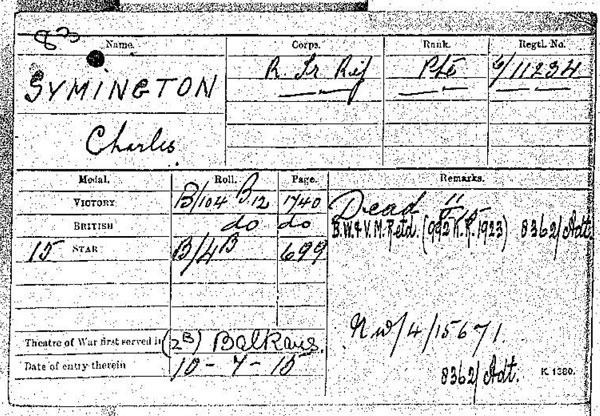 Name. Corps. Rank. Regtl. No.
SYMINGTON R. Ir Rif Pte 6/11234
Charles
Medal. Roll. Page. Remarks.
VICTORY B/104 B.12 1740 Dead
BRITISH do do B.W.&V.M. Retd. (992 K.R. 1923) 8362/Adt.
15 STAR B/4B 699
NW/4/15671.
Theatre of War first served in (2B) Balkans.
Date of entry therein 10-7-15 8362/Adt. K. 1380.